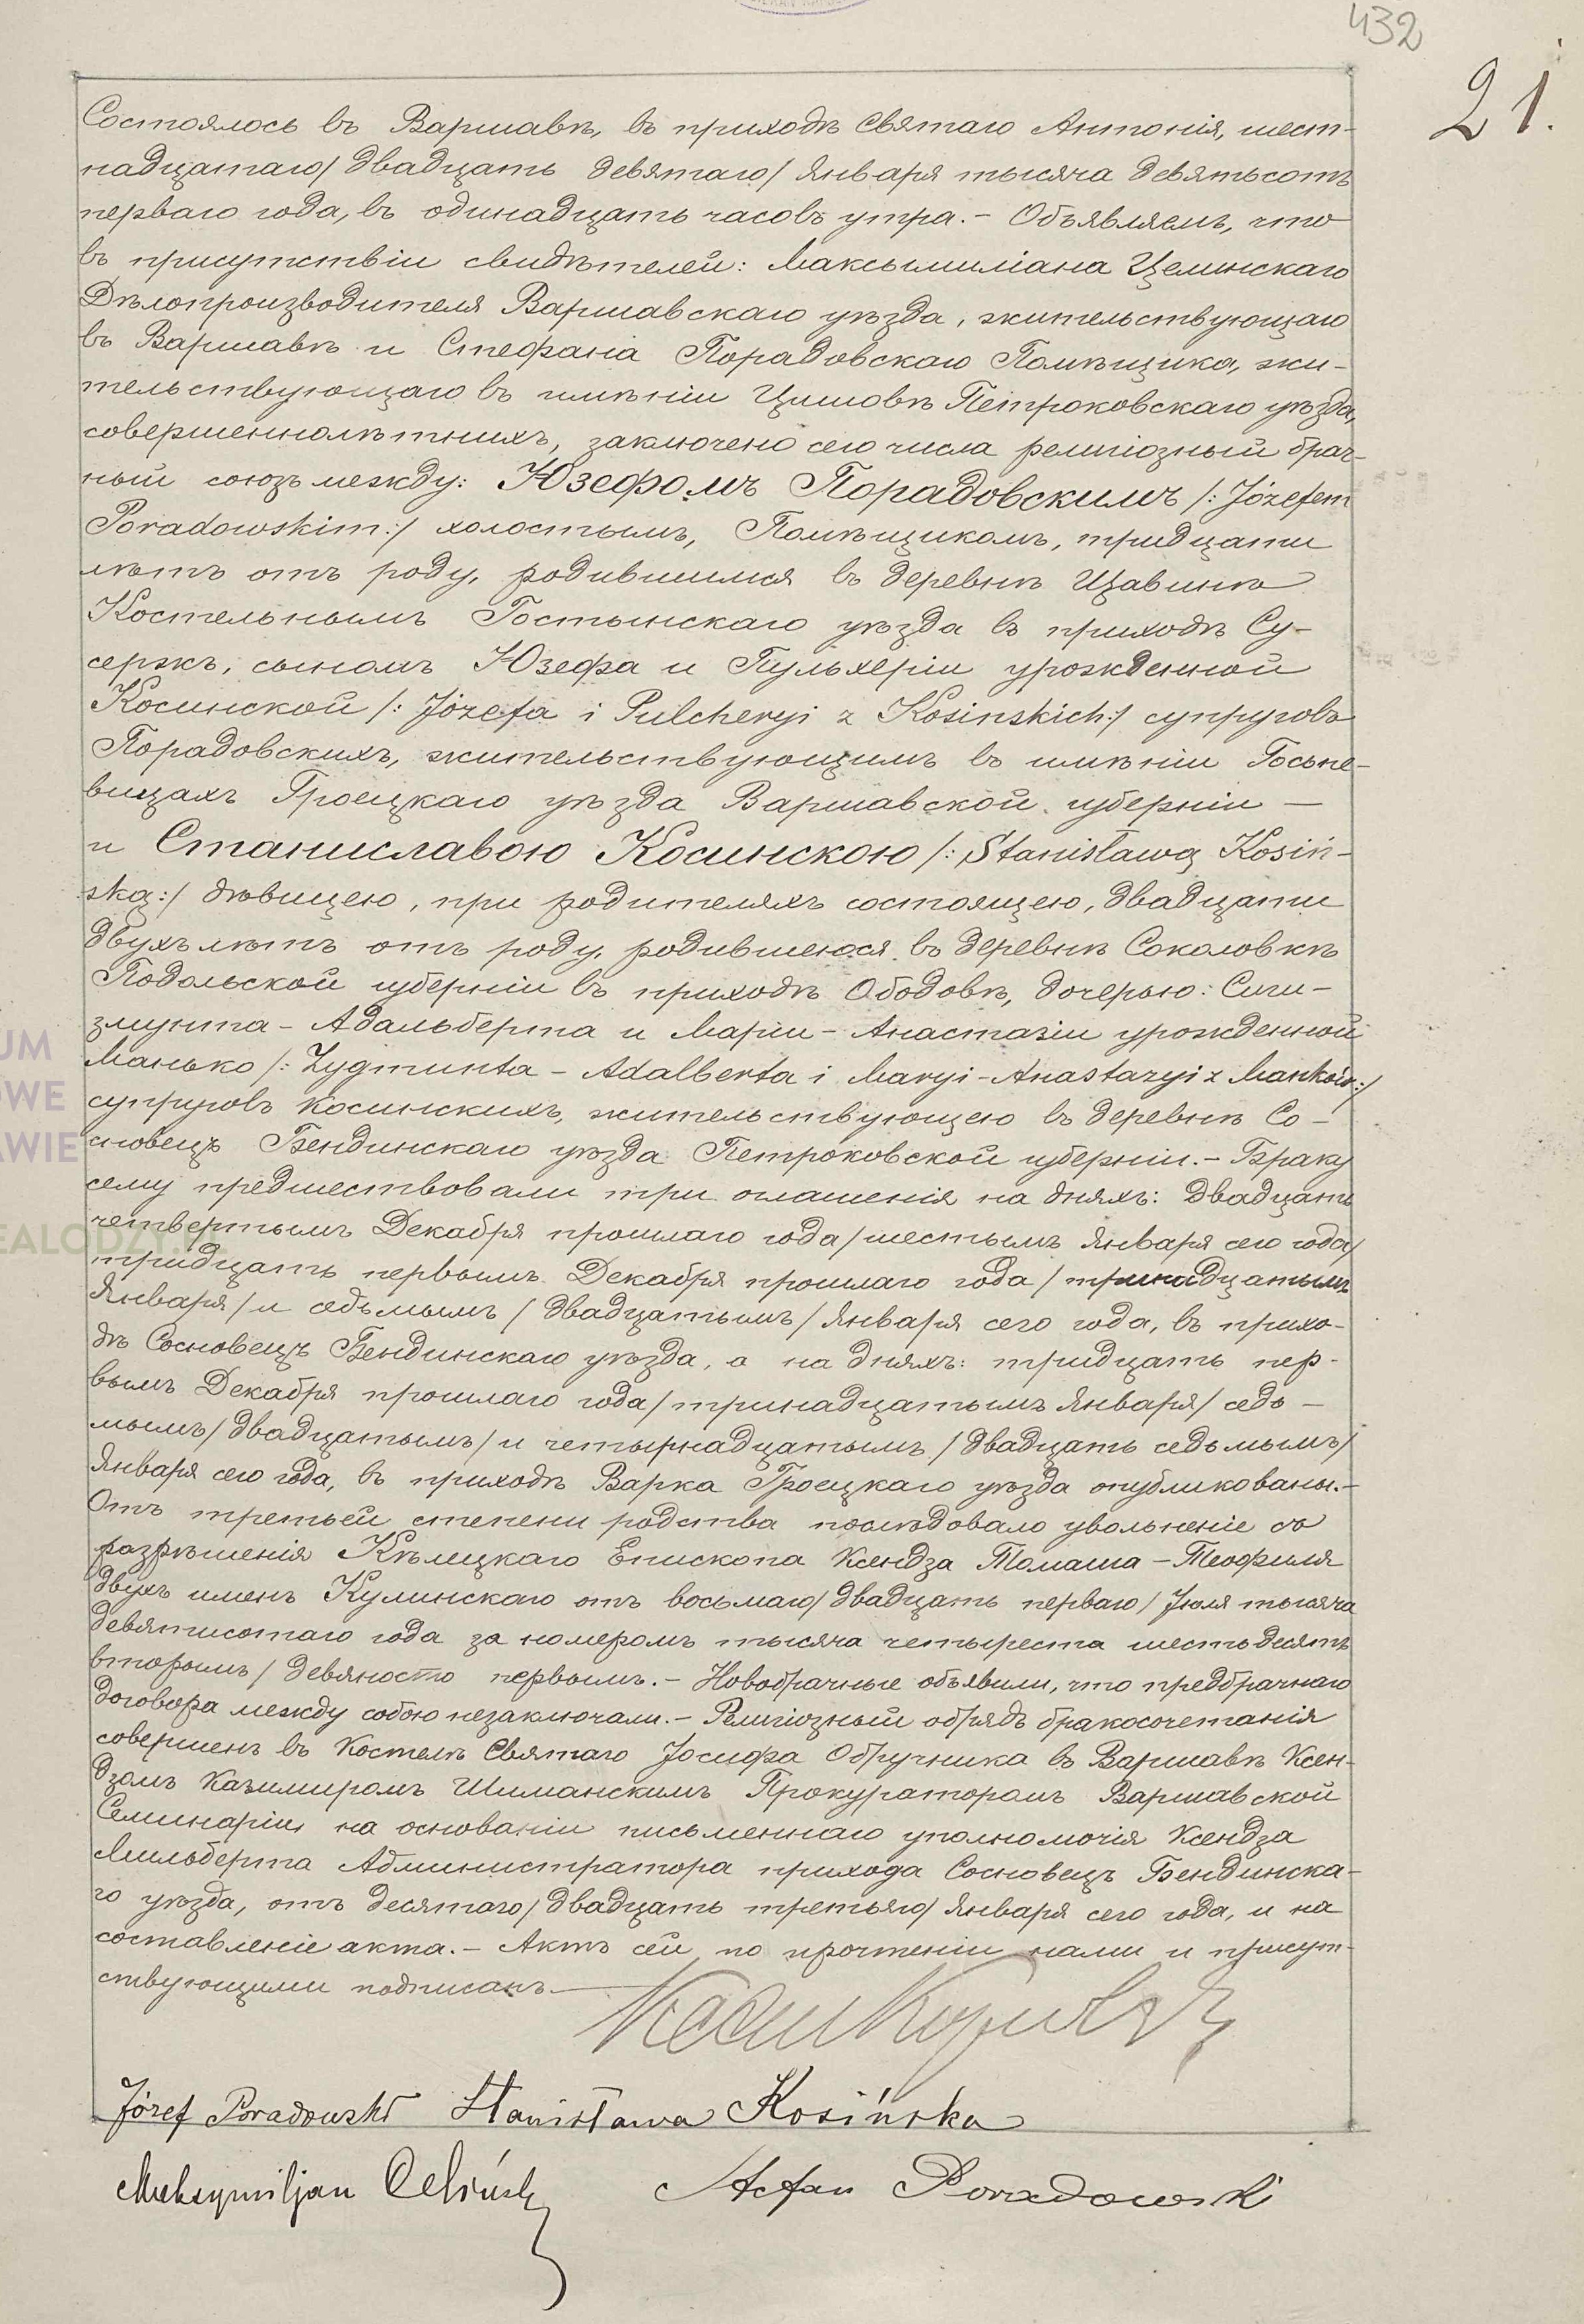 432
21.
Состоялось въ Варшавѣ, въ приходѣ Святаго Антонія, шест-
надцатаго/двадцать девятаго/Января тысяча девятьсотъ
перваго года, въ одинадцать часовъ утра.- Объявляемъ, что
въ присутствіи свидѣтелей: Максымиліана Целинскаго
Дѣлопроизводителя Варшавскаго уѣзда, жительствующаго
въ Варшавѣ и Стефана Порадовскаго Помѣщика, жи-
тельствующаго въ имѣніи Петроковскаго уѣзда,
совершеннолѣтнихъ, заключено сего числа религіозный брач-
ный союзъ между: Юзефомъ Порадовскимъ /: Józefem
Poradowskim:/ холостымъ, Помѣщикомъ, тридцати
лѣтъ отъ роду, родившимся въ деревнѣ Щавинѣ
Костельнымъ Гостынскаго уѣзда въ приходѣ Су-
сержъ, сыномъ Юзефа и Пульхеріи урожденной
Косинской /: Józefa i Pulcheryi z Kosinskich:/ супруговъ
Порадовскихъ, жительствующимъ въ имѣніи Госьне-
вицахъ Гроецкаго уѣзда Варшавской губерніи —
и Станиславою Косинскою /: Stanisławą Kosiń-
ską:/ дѣвицею, при родителяхъ состоящею, двадцати
двухъ лѣтъ отъ роду, родившеюся въ деревнѣ Соколовкѣ
Подольской губерніи въ приходѣ Ободовѣ, дочерью: Сиги-
змунта-Адальберта и Маріи-Анастазіи урожденной
Манько /: Zygmunta - Adalberta i Maryi-Anastazyi z Mańków:/
супруговъ Косинскихъ, жительствующею въ деревнѣ Со-
сновецъ Бендинскаго уѣзда Петроковской губерніи.- Браку
сему предшествовали три оглашенія на дняхъ: двадцать
четвертымъ Декабря прошлаго года/шестымъ Января сего года/
тридцать первымъ Декабря прошлаго года/тринадцатымъ
Января/и седьмымъ/двадцатымъ/Января сего года, въ прихо-
дѣ Сосновецъ Бендинскаго уѣзда, а на дняхъ: тридцать пер-
вымъ Декабря прошлаго года/тринадцатымъ Января/седь-
мымъ/двадцатымъ/и четырнадцатымъ/двадцать седьмымъ/
Января сего года, въ приходѣ Варка Гроецкаго уѣзда опубликованы.-
Отъ третьей степени родства послѣдовало увольненіе съ
разрѣшенія Кѣлецкаго Епископа Ксендза Томаша-Теофиля
двухъ именъ Кулинскаго отъ восьмаго/двадцать перваго/Іюля тысяча
девятисотаго года за номеромъ тысяча четыреста шестьдесятъ
вторымъ/девяносто первымъ.- Новобрачные объявили, что предбрачнаго
договора между собою незаключали.- Религіозный обрядъ бракосочетанія
совершенъ въ Костелѣ Святаго Іосифа Обручника въ Варшавѣ Ксен-
дзомъ Казимиромъ Шиманскимъ Прокураторомъ Варшавской
Семинаріи, на основаніи письменнаго уполномочія Ксендза
Мильберта Администратора прихода Сосновецъ Бендинска-
го уѣзда, отъ десятаго/двадцать третьяго/Января сего года, и на
составленіе акта.- Актъ сей по прочтеніи нами и присут-
ствующими подписанъ.—
Józef Poradowski Stanisława Kosińska
Maksymiljan Celiński Stefan Poradowski